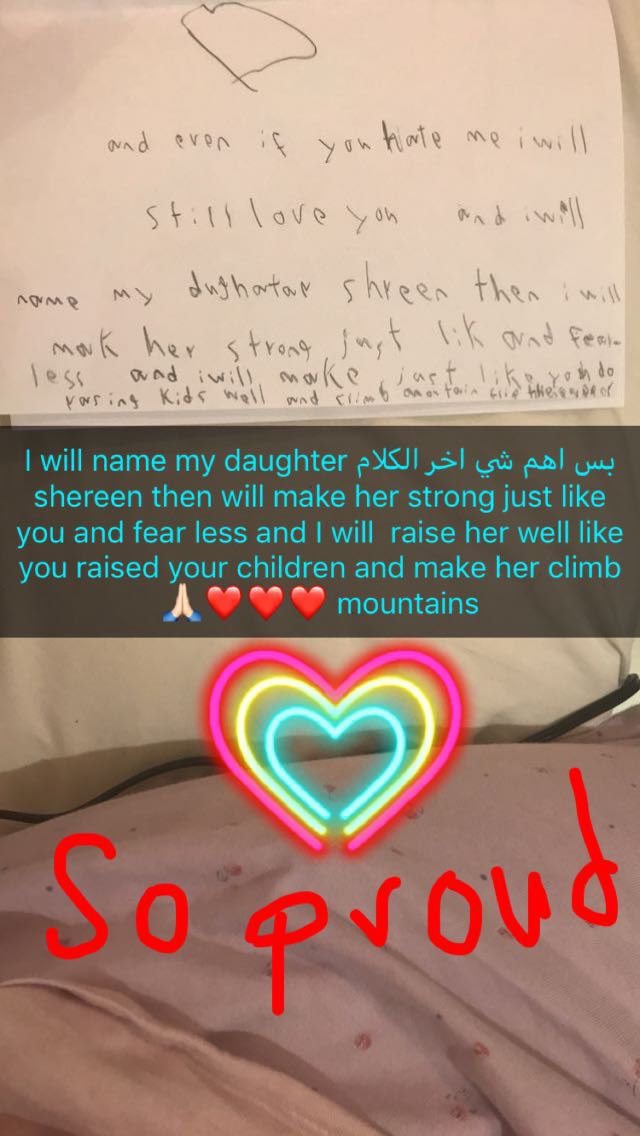 and even if you hate me i will
still love you and i will
name my dughatar shreen then i will
mak her strong just lik and fear-
less and i will make just like you do
rasing kids well and climb
بس اهم شي اخر الكلام I will name my daughter
shereen then will make her strong just like
you and fear less and I will raise her well like
you raised your children and make her climb
🙏🏻❤️❤️❤️ mountains
So proud